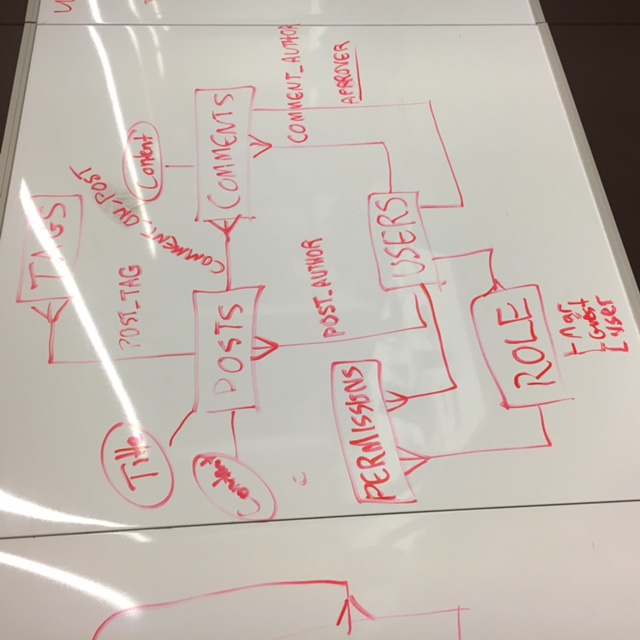 TAGS
Title
POST_TAG
COMMENT_ON_POST
Content
Content
POSTS
COMMENTS
COMMENT_AUTHOR
POST_AUTHOR
APPROVER
PERMISSIONS
USERS
ROLE
Guest
User